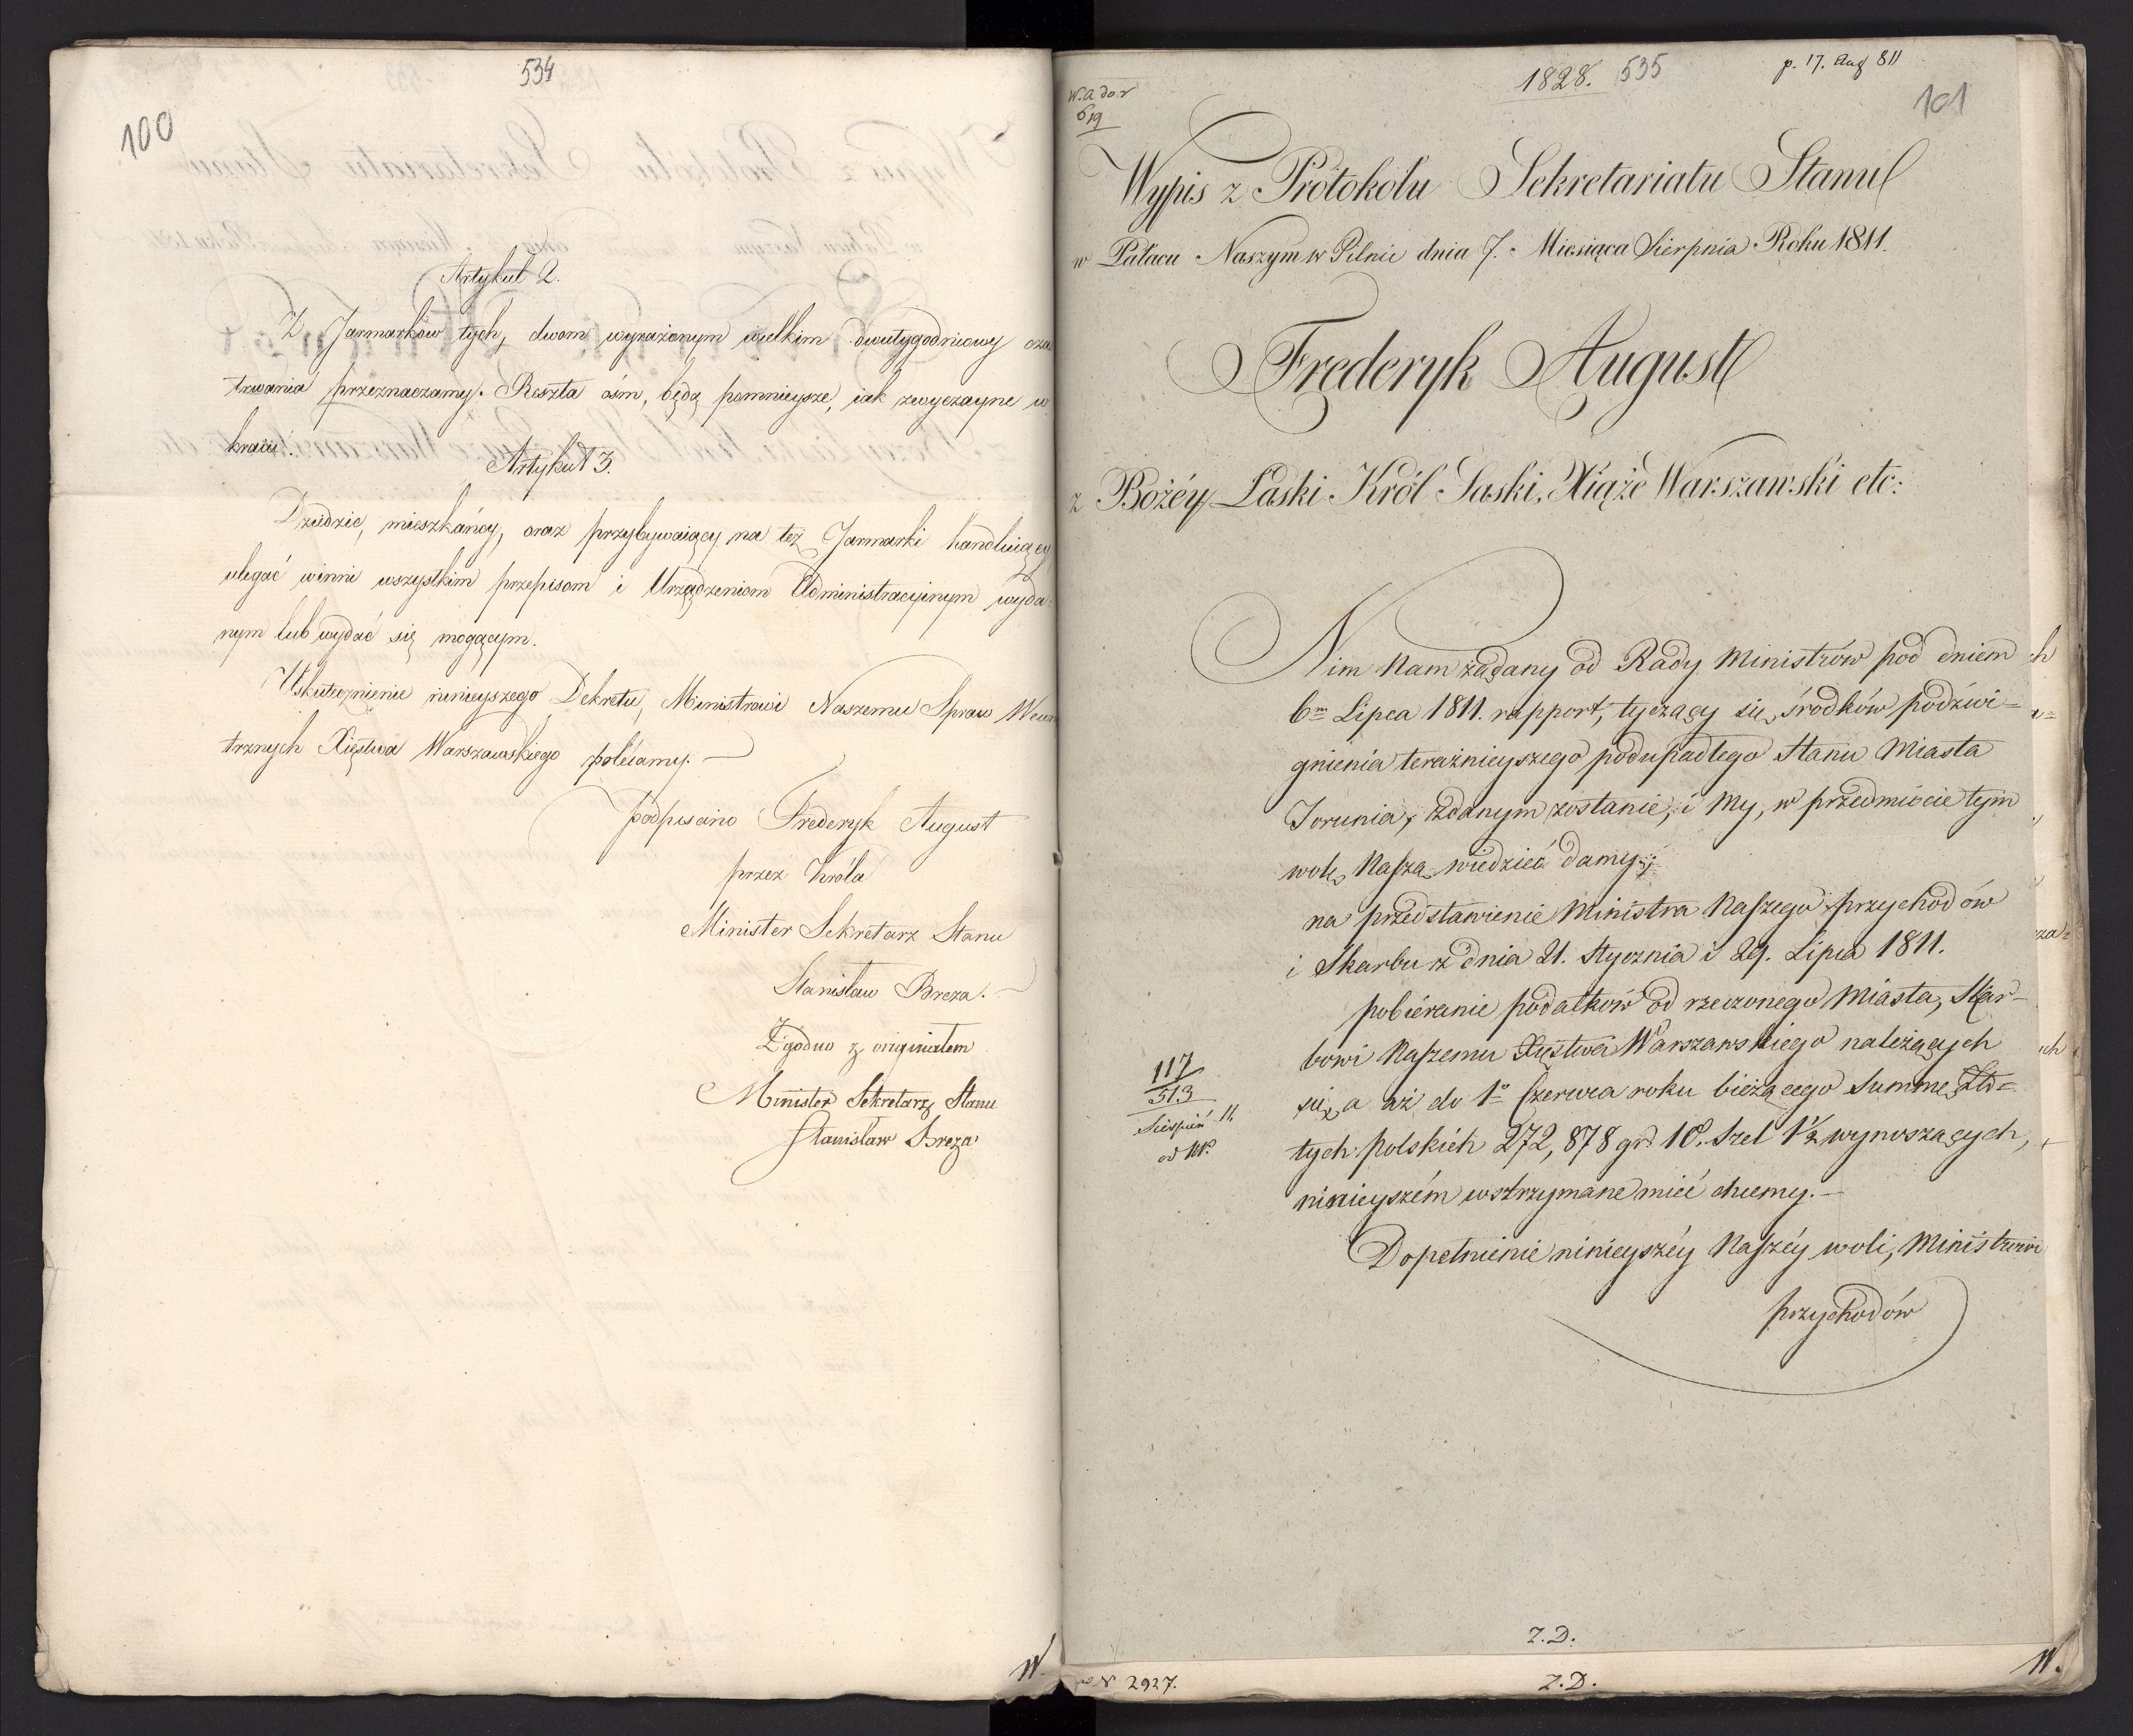 534
100
Artykuł 2.
Z Jarmarków tych, dwom wyrażonym wielkim dwutygodniowy cza
trwania przeznaczamy. Reszta ośm, będą pomnieysze, iak zwyczayne w
kraiu.
Artykuł 3.
Dziedzic, mieszkańcy, oraz przybywaiący na też Jarmarki handluiący
ulegać winni wszystkim przepisom i Urządzeniom Administracyinym wyda=
nym lub wydać się mogącym.
Uskutecznienie ninieyszego Dekretu, Ministrowi Naszemu Spraw Wewn
trznych Xięstwa Warszawskiego polecamy. —
podpisano Frederyk August
przez Króla
Minister Sekretarz Stanu
Stanisław Breza. —
Zgodno z originałem
Minister Sekretarz Stanu
Stanisław Breza
W.
1828. 535
p. 17. Aug 811
101
619
Wypis z Protokołu Sekretariatu Stanu
w Pałacu Naszym w Pilnic dnia 7. Miesiąca Sierpnia Roku 1811.
Frederyk August
z Bożéy Łaski Król Saski, Xiąże Warszawski etc:
Nim Nam żądany od Rady Ministrów pod dniem
6m Lipca 1811. rapport, tyczący się środków podźwi=
gnienia teraźnieyszego podupadłego Stanu Miasta
Torunia, zdanym zostanie, i My, w przedmiocie tym
wolę Naszą wiedzieć damy;
na przedstawienie Ministra Naszego przychodów
i Skarbu z dnia 21. Stycznia i 29. Lipca 1811.
pobiéranie podatków od rzeczonego Miasta, Skar=
bowi Naszemu Xięstwa Warszawskiego należących
się, a aż do 1o Czerwca roku bieżącego Summę Zło=
tych polskich 272,878 gr. 10. szel 1½ wynoszących,
ninieyszém wstrzymane mieć chcemy. —
Dopełnienie ninieyszéy Naszéy woli, Ministrowi
przychodów
117
513
Sierpień 11.
Z.D.
N 2927.
Z.D.
W.